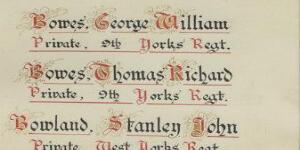 Bowes, George William
Private, 9th Yorks Regt.
Bowes, Thomas Richard
Private, 9th Yorks Regt.
Bowland, Stanley John
Private West Yorks Regt